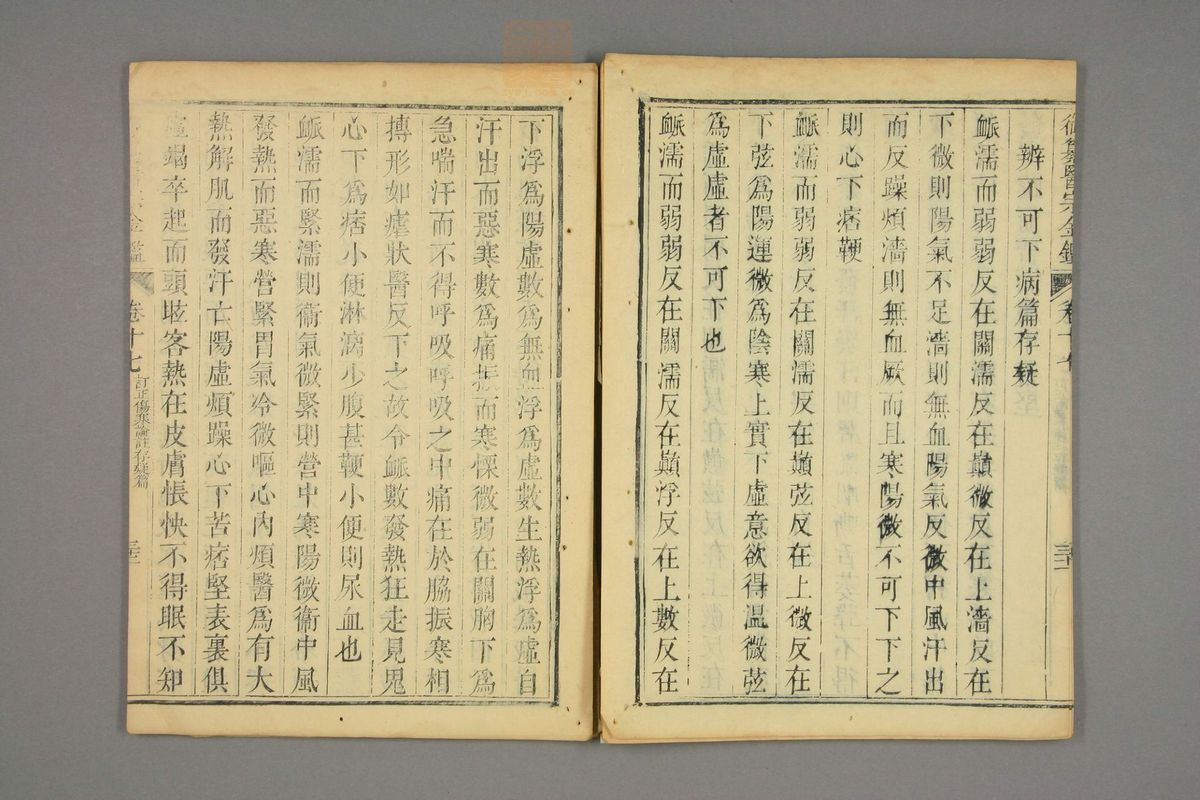 御纂醫宗金鑑 卷十七
辨不可下病篇存疑
衇濡而弱弱反在關濡反在巔微反在上濇反在
下微則陽氣不足濇則無血陽氣反微中風汗出
而反躁煩濇則無血厥而且寒陽微不可下下之
則心下痞鞕
衇濡而弱弱反在關濡反在巔弦反在上微反在
下弦爲陽運微爲陰寒上實下虛意欲得溫微弦
爲虛虛者不可下也
衇濡而弱弱反在關濡反在巔浮反在上數反在
下浮爲陽虛數爲無血浮爲虛數生熱浮爲虛自
汗出而惡寒數爲痛振而寒慄微弱在關胸下爲
急喘汗而不得呼吸呼吸之中痛在於脇振寒相
搏形如瘧狀醫反下之故令衇數發熱狂走見鬼
心下爲痞小便淋漓少腹甚鞕小便則尿血也
衇濡而緊濡則衞氣微緊則營中寒陽微衞中風
發熱而惡寒營緊胃氣冷微嘔心內煩醫爲有大
熱解肌而發汗亡陽虛煩躁心下苦痞堅表裏俱
虛竭卒起而頭眩客熱在皮膚悵怏不得眠不知
金鑑 卷十七 訂正傷寒論註存疑篇